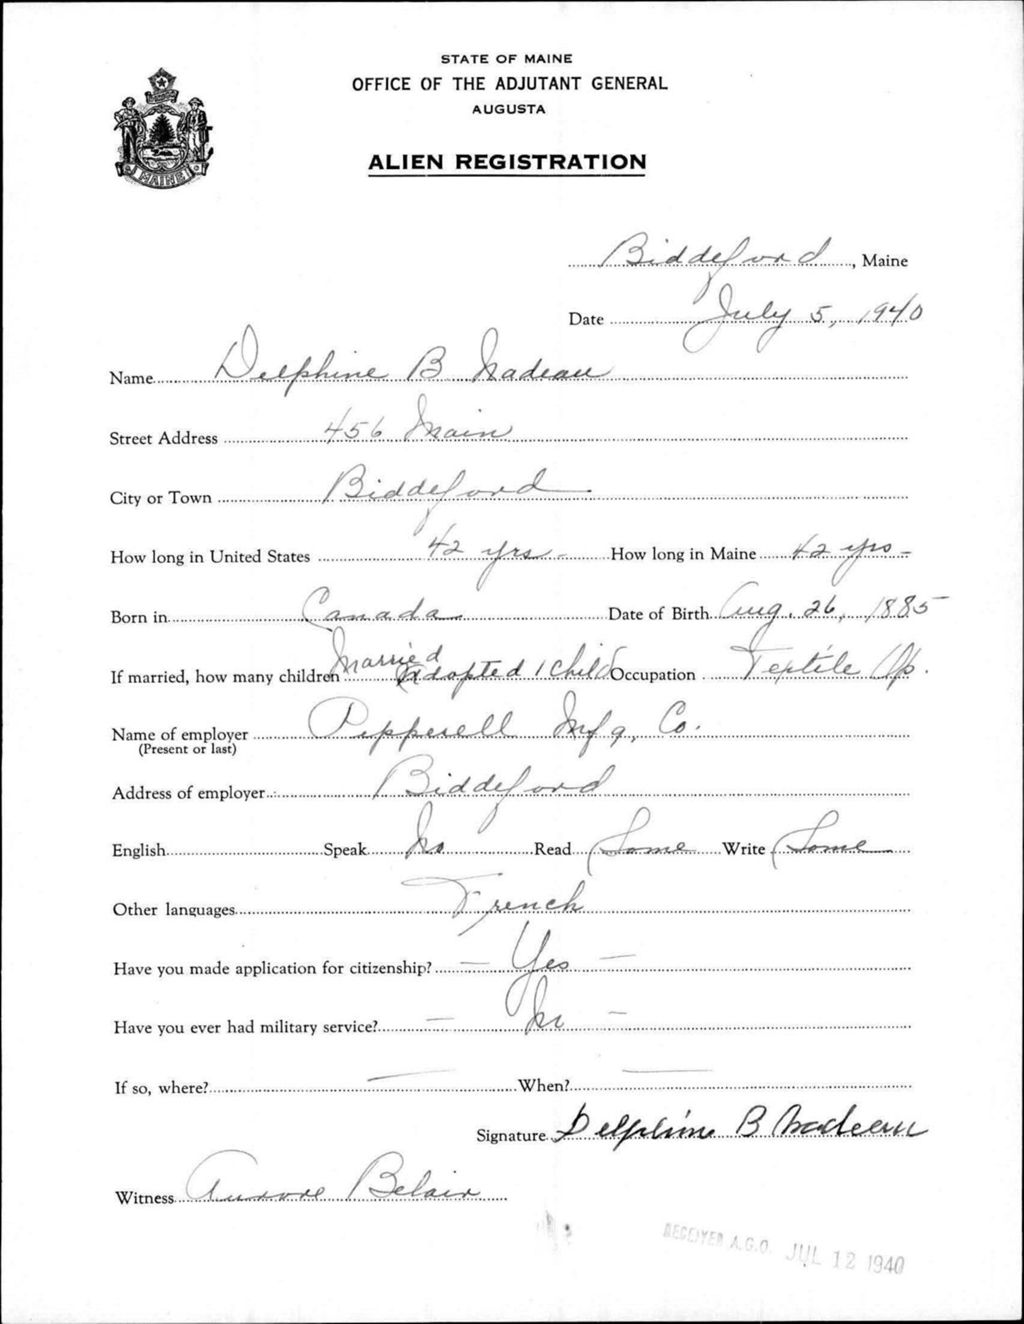 STATE OF MAINE
OFFICE OF THE ADJUTANT GENERAL
AUGUSTA
ALIEN REGISTRATION
MAINE
Biddeford, Maine
Date July 5, 1940
Name Delphine B Nadeau
Street Address 456 Main
City or Town Biddeford
How long in United States 42 yrs - How long in Maine 42 yrs -
Born in Canada Date of Birth Aug. 26, 1885
If married, how many children Married Adopted 1 child Occupation Textile Op.
Name of employer Pepperell Mfg. Co.
(Present or last)
Address of employer Biddeford
English Speak No Read Some Write Some
Other languages French
Have you made application for citizenship? — Yes —
Have you ever had military service? — No —
If so, where? — When? —
Signature Delphine B Nadeau
Witness Aurore Belair
RECEIVED A.G.O. JUL 12 1940